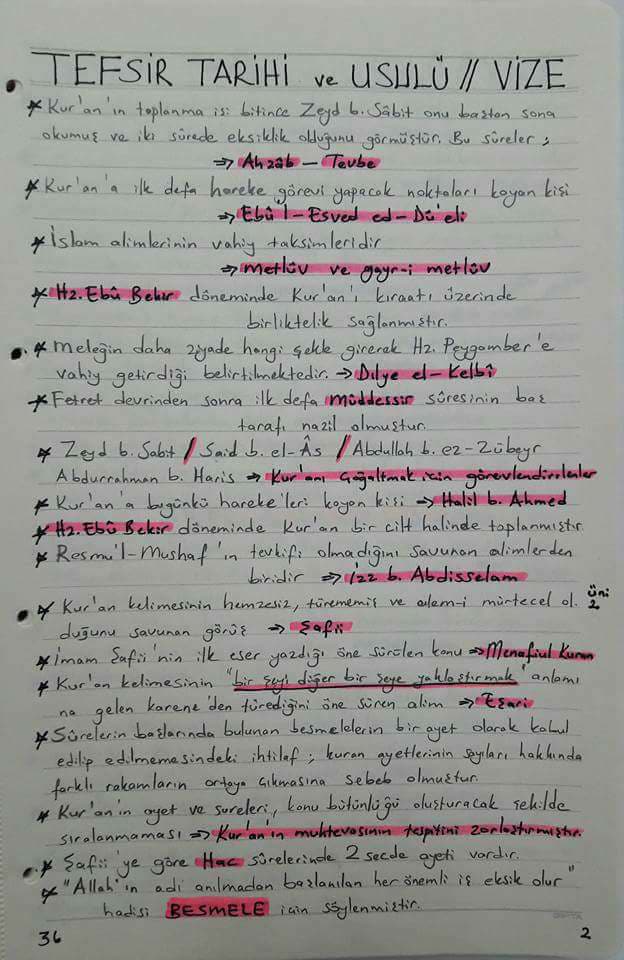 TEFSİR TARİHİ ve USULÜ // VİZE
* Kur'an'ın toplanma işi bitince Zeyd b. Sâbit onu baştan sona
okumuş ve iki sûrede eksiklik olduğunu görmüştür. Bu sûreler;
⇒ Ahzâb – Tevbe
* Kur'an'a ilk defa hareke görevi yapacak noktaları koyan kişi
⇒ Ebû'l-Esved ed-Dü'eli
* İslam alimlerinin vahiy taksimleridir
⇒ metlûv ve gayr-i metlûv
* Hz. Ebû Bekir döneminde Kur'an'ı kıraatı üzerinde
birliktelik sağlanmıştır.
* Meleğin daha ziyade hangi şekle girerek Hz. Peygamber'e
vahiy getirdiği belirtilmektedir. → Dihye el-Kelbî
* Fetret devrinden sonra ilk defa müddessir sûresinin baş
tarafı nazil olmuştur.
* Zeyd b. Sabit / Said b. el-Âs / Abdullah b. ez-Zübeyr
Abdurrahman b. Haris ⇒ Kur'anı çoğaltmak için görevlendirilenler
* Kur'an'a bugünkü hareke'leri koyan kişi ⇒ Halil b. Ahmed
* Hz. Ebû Bekir döneminde Kur'an bir cilt halinde toplanmıştır.
* Resmü'l-Mushaf'ın tevkifi olmadığını savunan alimlerden
biridir ⇒ İzz b. Abdisselam
* Kur'an kelimesinin hemzesiz, türememiş ve alem-i mürtecel ol. üni 2
duğunu savunan görüş ⇒ Şafii
* İmam Şafii'nin ilk eser yazdığı öne sürülen konu ⇒ Menafiul Kuran
* Kur'an kelimesinin "bir şeyi diğer bir şeye yaklaştırmak" anlamı
na gelen karene'den türediğini öne süren alim ⇒ Eşari
* Sûrelerin başlarında bulunan besmelelerin bir ayet olarak kabul
edilip edilmemesindeki ihtilaf; kuran ayetlerinin sayıları hakkında
farklı rakamların ortaya çıkmasına sebeb olmuştur.
* Kur'an'ın ayet ve sureleri, konu bütünlüğü oluşturacak şekilde
sıralanmaması ⇒ Kur'an'ın muhtevasının tespitini zorlaştırmıştır.
* Şafii'ye göre Hac sûrelerinde 2 secde ayeti vardır.
* "Allah'ın adı anılmadan başlanılan her önemli iş eksik olur"
hadisi BESMELE için söylenmiştir.
36 2